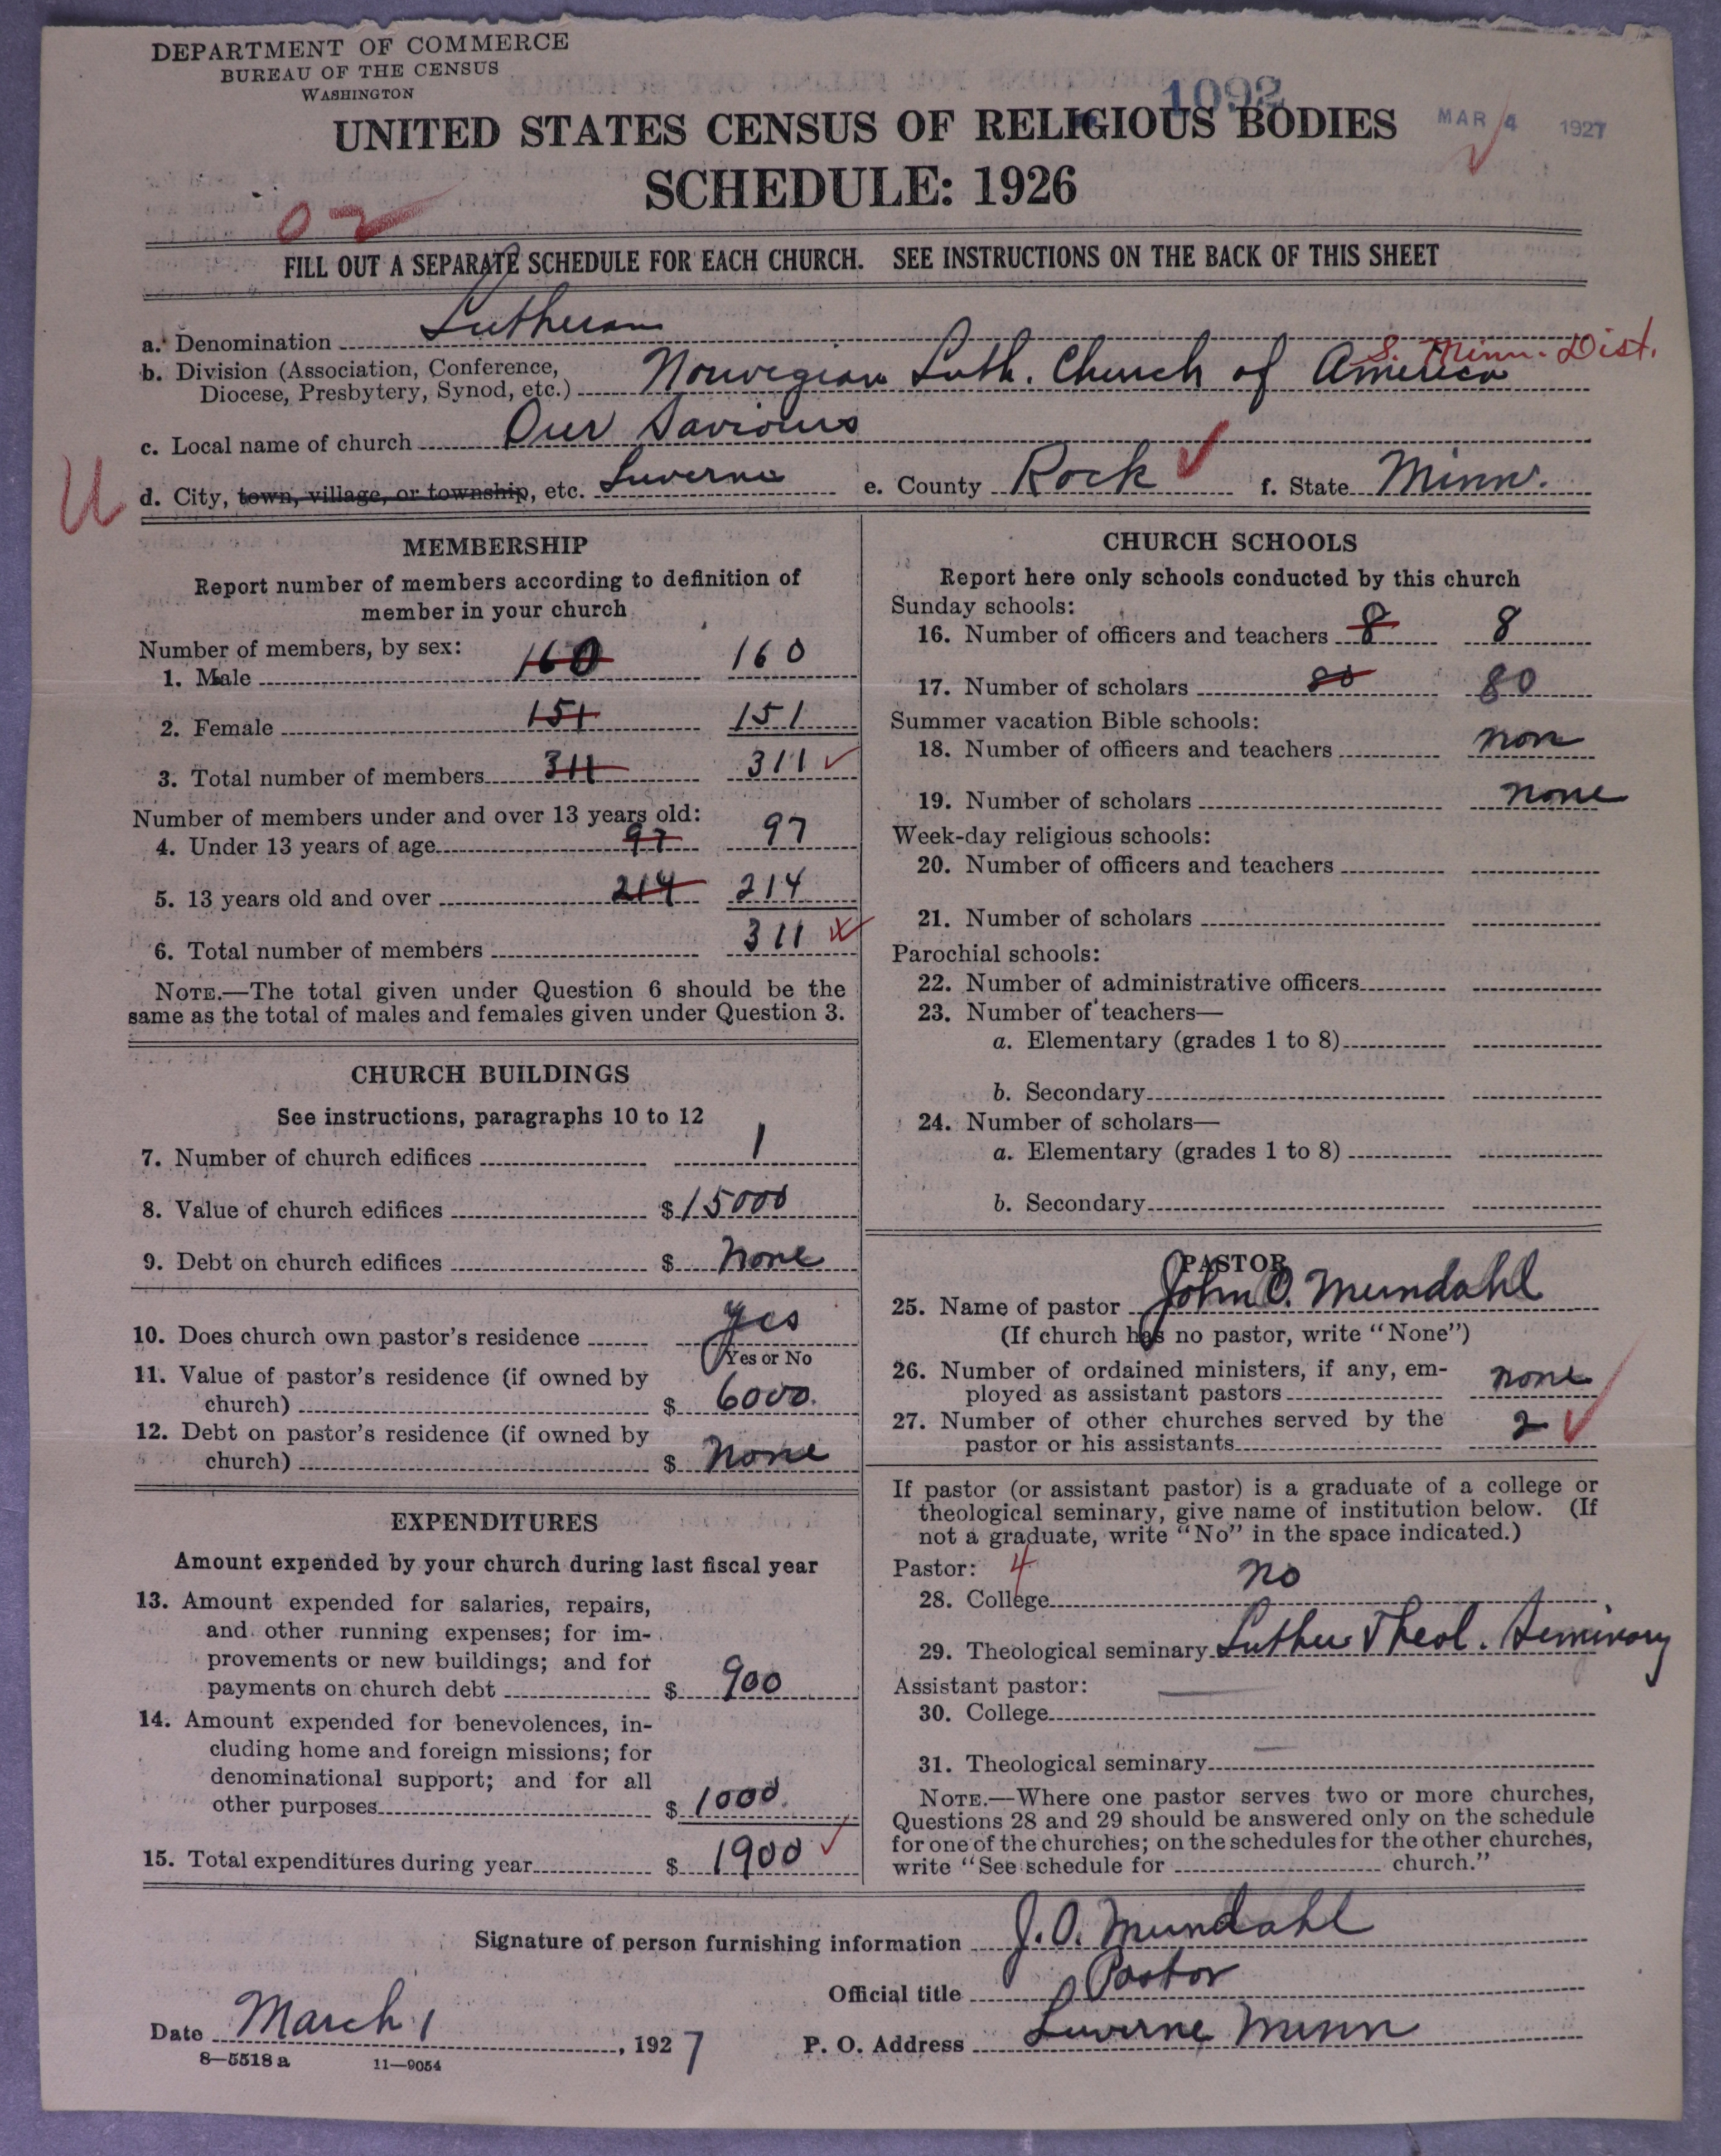 DEPARTMENT OF COMMERCE
BUREAU OF THE CENSUS
WASHINGTON
1092
UNITED STATES CENSUS OF RELIGIOUS BODIES
MAR 4 1927
SCHEDULE: 1926
02
FILL OUT A SEPARATE SCHEDULE FOR EACH CHURCH. SEE INSTRUCTIONS ON THE BACK OF THIS SHEET
a. Denomination Lutheran
S. Minn. Dist.
b. Division (Association, Conference,
Diocese, Presbytery, Synod, etc.) Norwegian Luth. Church of America
c. Local name of church Our Saviours
U
d. City, town, village, or township, etc. Luverne e. County Rock f. State Minn.
MEMBERSHIP
Report number of members according to definition of
member in your church
Number of members, by sex:
1. Male 160 160
2. Female 151 151
3. Total number of members 311 311
Number of members under and over 13 years old:
4. Under 13 years of age 97 97
5. 13 years old and over 214 214
6. Total number of members 311
NOTE.—The total given under Question 6 should be the
same as the total of males and females given under Question 3.
CHURCH BUILDINGS
See instructions, paragraphs 10 to 12
7. Number of church edifices 1
8. Value of church edifices $15000
9. Debt on church edifices $ None
10. Does church own pastor's residence Yes
Yes or No
11. Value of pastor's residence (if owned by
church) $ 6000.
12. Debt on pastor's residence (if owned by
church) $ None
EXPENDITURES
Amount expended by your church during last fiscal year
13. Amount expended for salaries, repairs,
and other running expenses; for im-
provements or new buildings; and for
payments on church debt $ 900
14. Amount expended for benevolences, in-
cluding home and foreign missions; for
denominational support; and for all
other purposes $ 1000.
15. Total expenditures during year $ 1900
CHURCH SCHOOLS
Report here only schools conducted by this church
Sunday schools:
16. Number of officers and teachers 8 8
17. Number of scholars 80 80
Summer vacation Bible schools:
18. Number of officers and teachers non
19. Number of scholars none
Week-day religious schools:
20. Number of officers and teachers
21. Number of scholars
Parochial schools:
22. Number of administrative officers
23. Number of teachers—
a. Elementary (grades 1 to 8)
b. Secondary
24. Number of scholars—
a. Elementary (grades 1 to 8)
b. Secondary
PASTOR
25. Name of pastor John O. Mundahl
(If church has no pastor, write "None")
26. Number of ordained ministers, if any, em-
ployed as assistant pastors none
27. Number of other churches served by the
pastor or his assistants 2
If pastor (or assistant pastor) is a graduate of a college or
theological seminary, give name of institution below. (If
not a graduate, write "No" in the space indicated.)
Pastor: 4
28. College no
29. Theological seminary Luther Theol. Seminary
Assistant pastor:
30. College
31. Theological seminary
NOTE.—Where one pastor serves two or more churches,
Questions 28 and 29 should be answered only on the schedule
for one of the churches; on the schedules for the other churches,
write "See schedule for church."
Signature of person furnishing information J. O. Mundahl
Official title Pastor
Date March 1, 1927 P. O. Address Luverne Minn
8—5518 a 11—9054